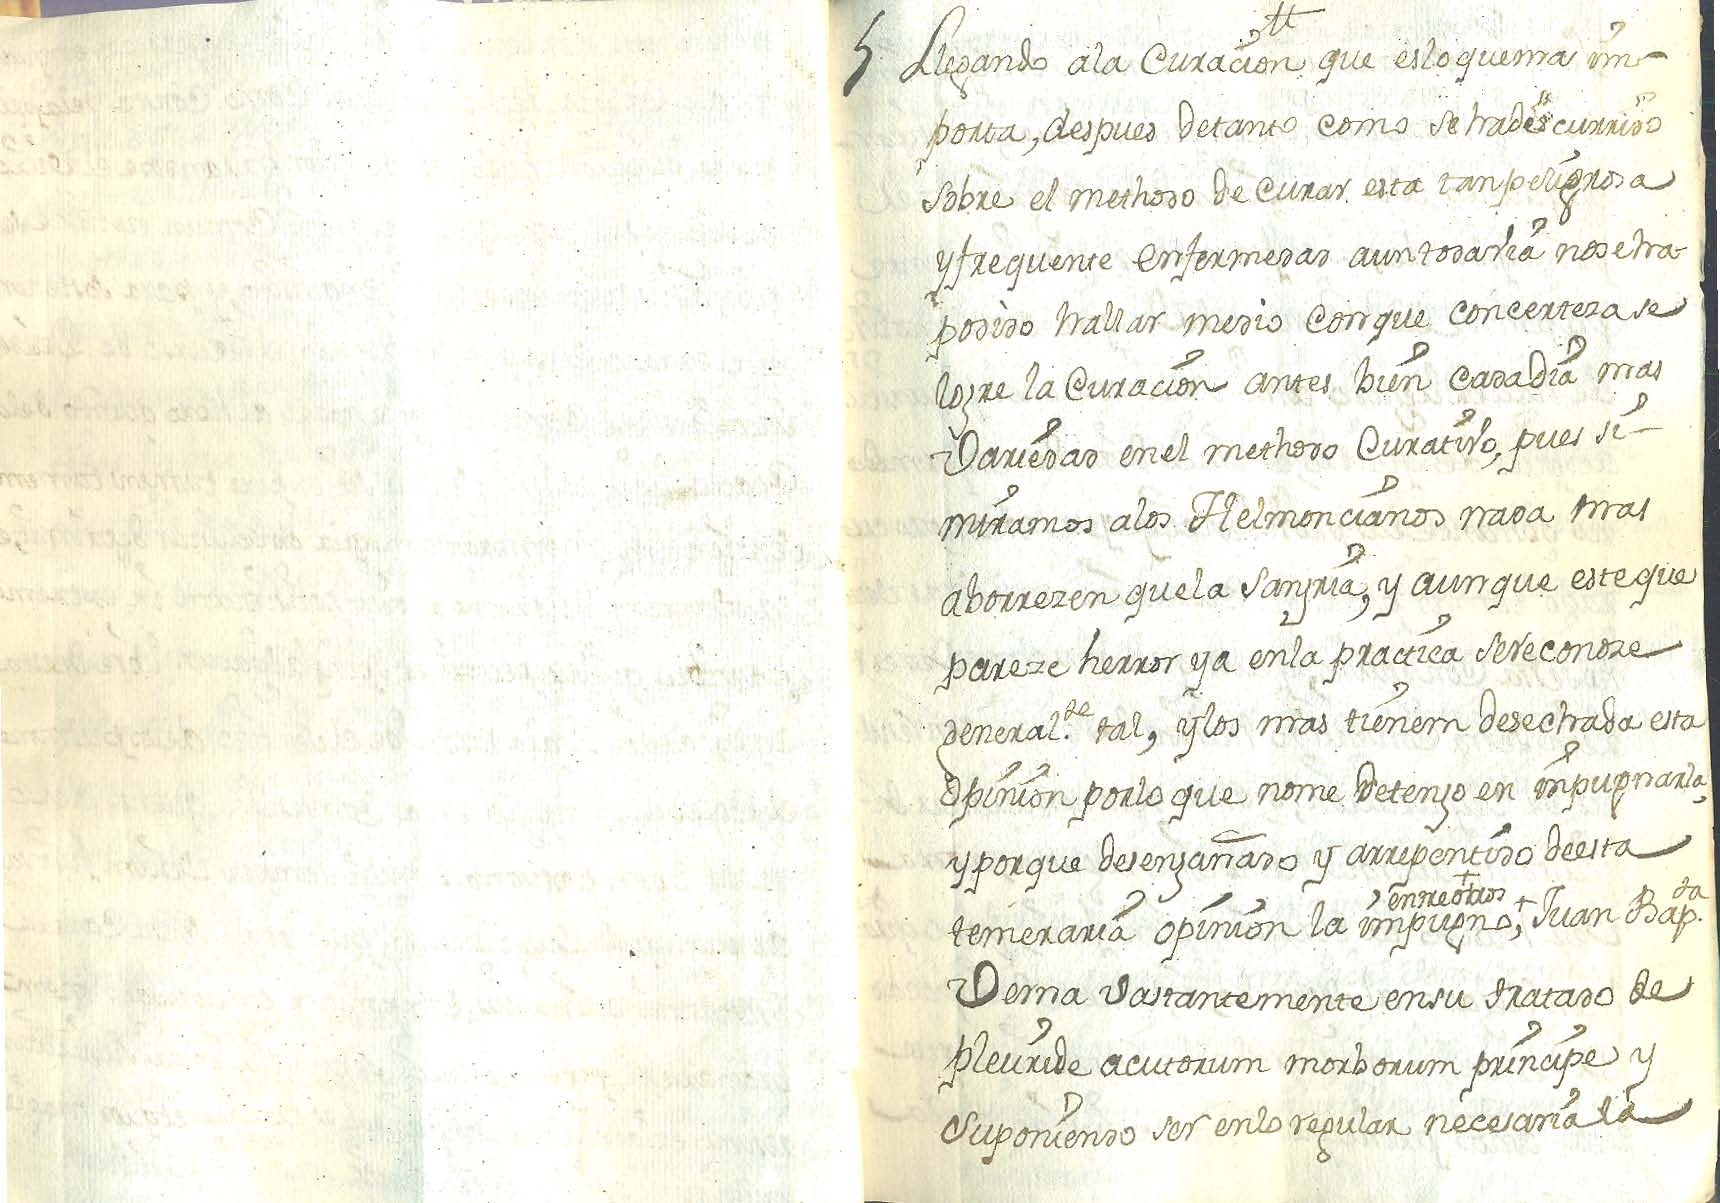 5 Llegando ala Curacion que esloquema im-
porta, despues detanto como se hadescurrido
sobre el methodo de Curar esta tan peligrosa
yfrequente enfermedad auntodavia nose ha
podido hallar medio Conque concerteza se
logre la Curacion antes bien cadadia mas
Variedad enel methodo Curativo, pues si
miramos alos Helmoncianos nada mas
aborrezen quela sangria, y aunque esteque
pareze herror ya enla practica sereconoze
general.te tal, ylos mas tienem desechada esta
opinion porlo que nome detengo en impugnarla,
yporque desengañado y arrepentido deesta
entreotros
temeraria opinion la impugno, + Juan Bap.ta
Verna Vastantemente ensu tratado de
pleuride acutorum morborum principe y
Suponiendo ser enlo regular necesaria la